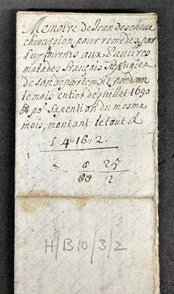 Memoire de Jean deschaux
chirurgien pour remedes par
luy fournis aux Pauvres
malades françois Refugiez
de son departement pendant
le mois entier de juillet 1690
& po sa pention du mesme
mois, montant le tout a
£ 4-16-2.
25
H/B10/3/2